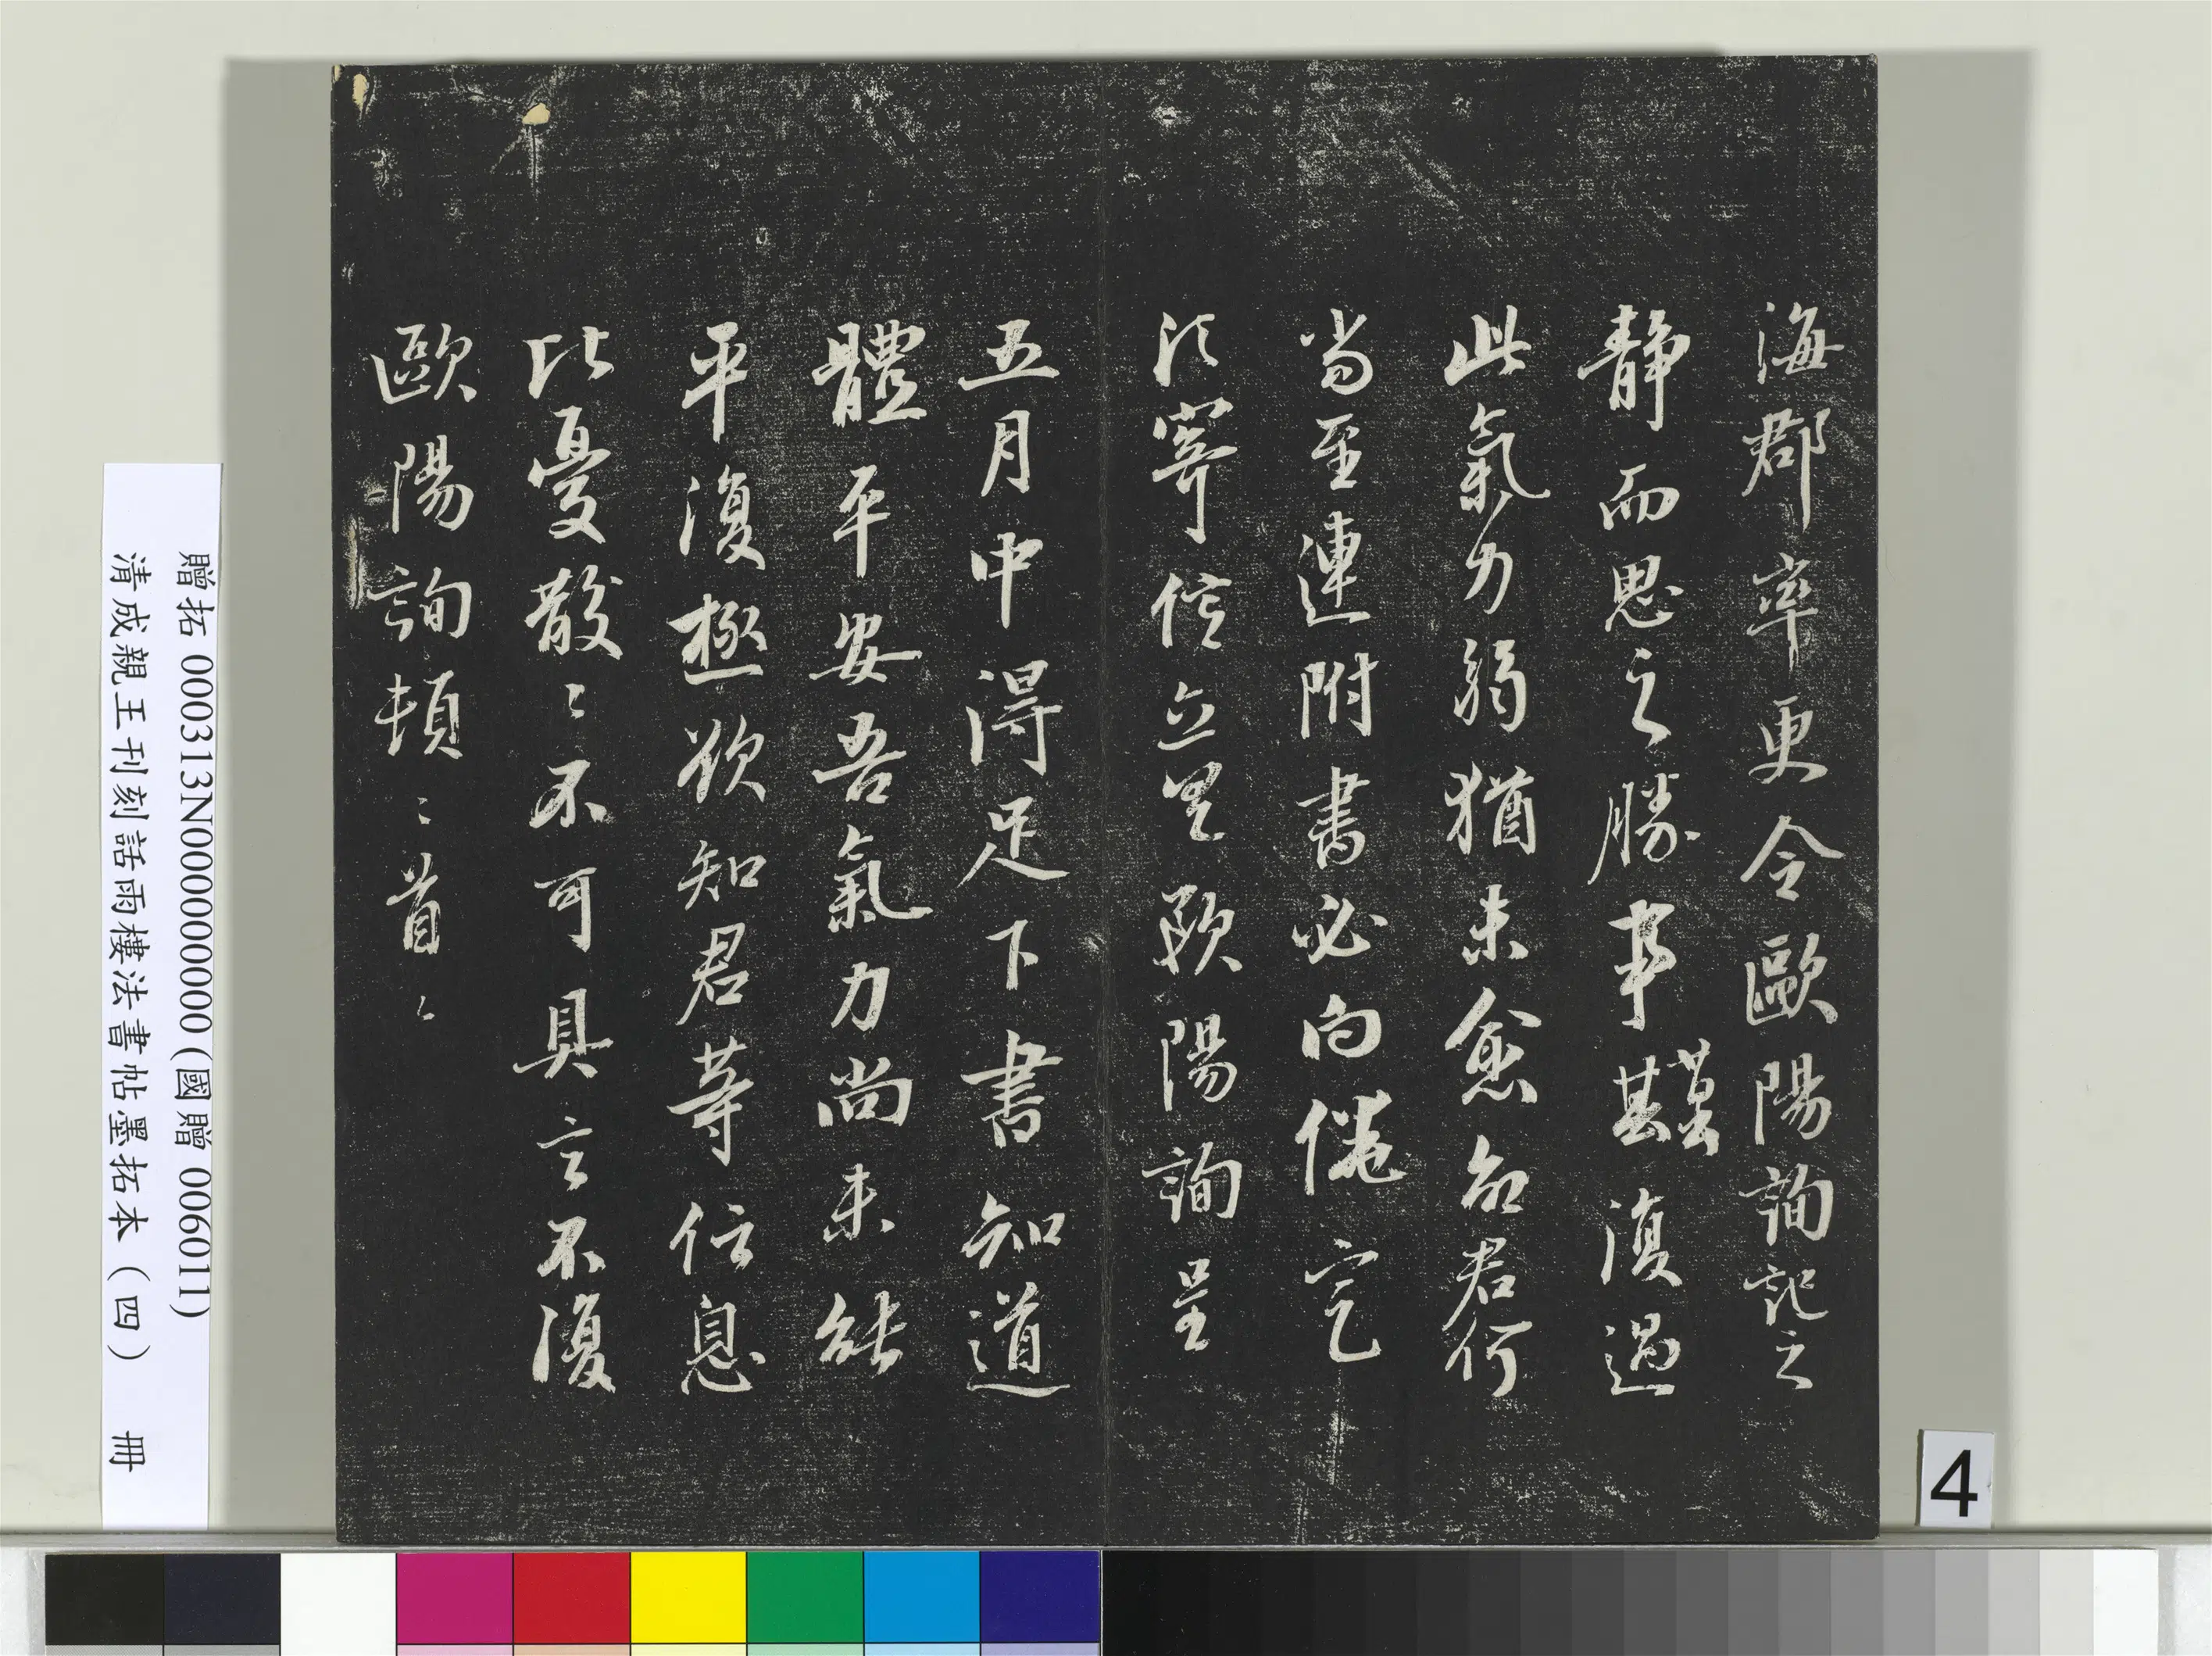 海郡率更令歐陽詢記之
靜而思之勝事甚難復過
此氣力弱猶未愈知君行
當至連附書必向倦定
須寄信立具歐陽詢呈
五月中得足下書知道
體平安吾氣力尚未能
平復極欲知君等信息
比憂散〻不可具言不復
歐陽詢頓〻首〻
贈拓 000313N000000000 (國贈 006011)
清成親王刊刻話雨樓法書帖墨拓本（四） 冊
4